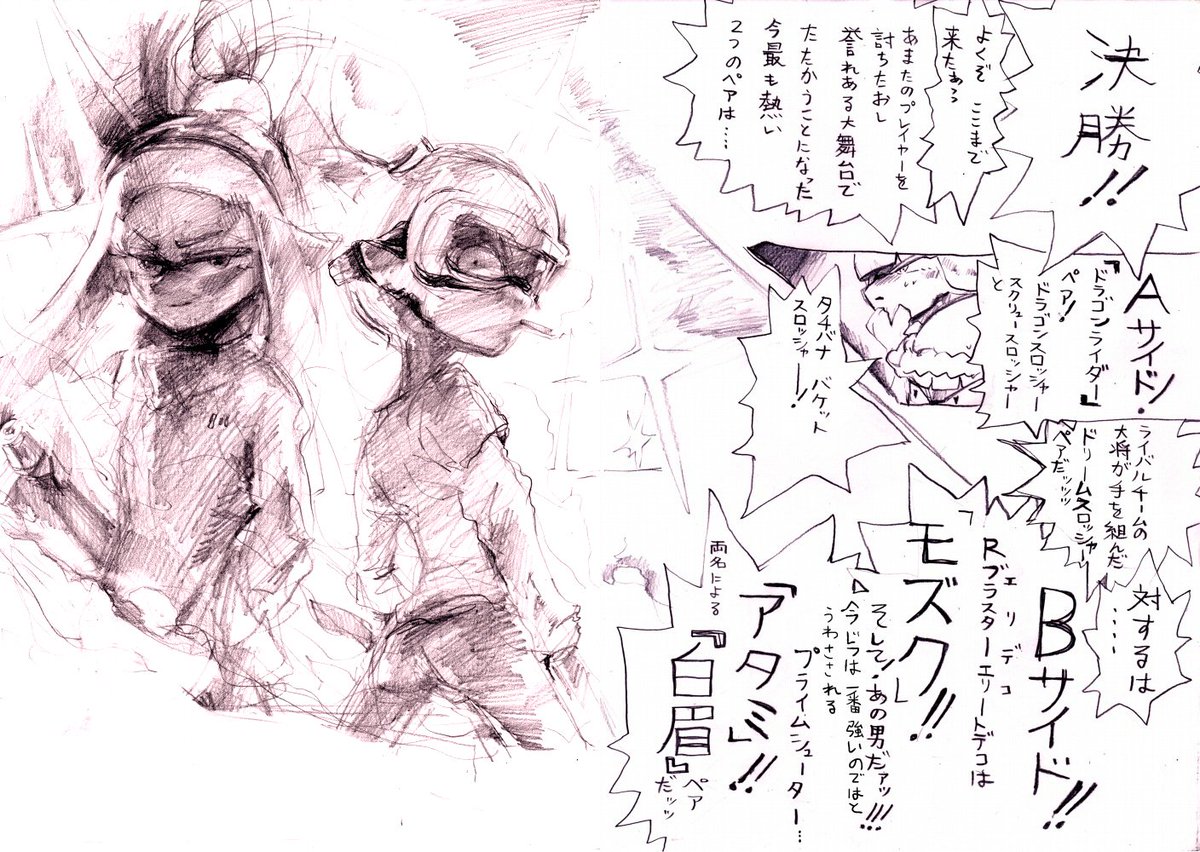 決勝!!
よくぞ ここまで
来たぁっ
あまたのプレイヤーを
討ちたおし
誉れある大舞台で
たたかうことになった
今最も熱い
2つのペアは…
Aサイド!
『ドラゴンライダー』
ペア!
ドラゴンスロッシャー
と
スクリュースロッシャー
タチバナ バケット
スロッシャー!
ライバルチームの
大将が手を組んだ
ドリームスロッシャー
ペアだッッッ
対するは
‥‥‥
Bサイド!!
エリデコ
Rブラスターエリートデコは
「モズク」!!
そして!あの男だァッ!!!
今ドラは一番強いのではと
うわさされる
プライムシューター…
「アタミ」!!
両名による
『白眉』
ペア
だッッ